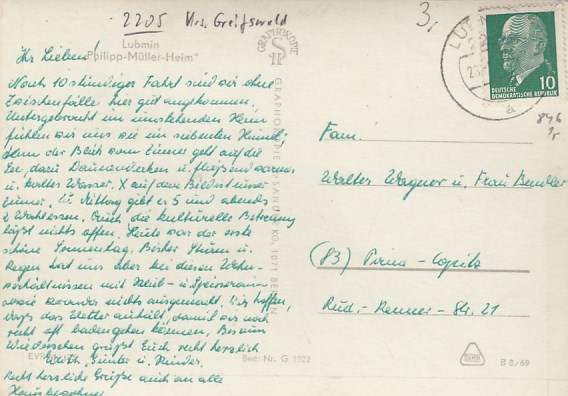 2205 Krs. Greifswald
3,
Lubmin
"Philipp-Müller-Heim"
GRAPHOKOPIE
GRAPHOKOPIE
KG, 1071 BERLIN
DEUTSCHE
DEMOKRATISCHE REPUBLIK
10
a
Ihr Lieben!
Nach 10stündiger Fahrt sind wir ohne
Zwischenfälle hier gut angekommen.
Untergebracht im umstehenden Heim
fühlen wir uns wie im siebenten Himmel,
denn der Blick vom Zimmer geht auf die
See, dazu Daunendecken u. fließend warmes
u. kaltes Wasser. X auf dem Bild ist unser
Zimmer. Zu Mittag gibt es 5 und abends
2 Wahlessen. Auch die kulturelle Betreuung
läßt nichts offen. Heute war der erste
schöne Sonnentag. Bisher Sturm u.
Regen hat uns aber bei diesen Wohn-
verhältnissen mit Klub- u. Speiseraum
sowie nichts ausgemacht. Wir hoffen,
daß das Wetter anhält, damit wir noch
recht oft baden gehen können. Bis zum
Wiedersehen grüßt Euch recht herzlich
Günter u. Kinder.
Recht herzliche Grüße auch an alle
Hausbewohner
Fam.
Walter Wagner u. Frau
(83) Pirna-Copitz
Rud.-Renner-Str. 21
Best.-Nr. G 1922
B 8/69